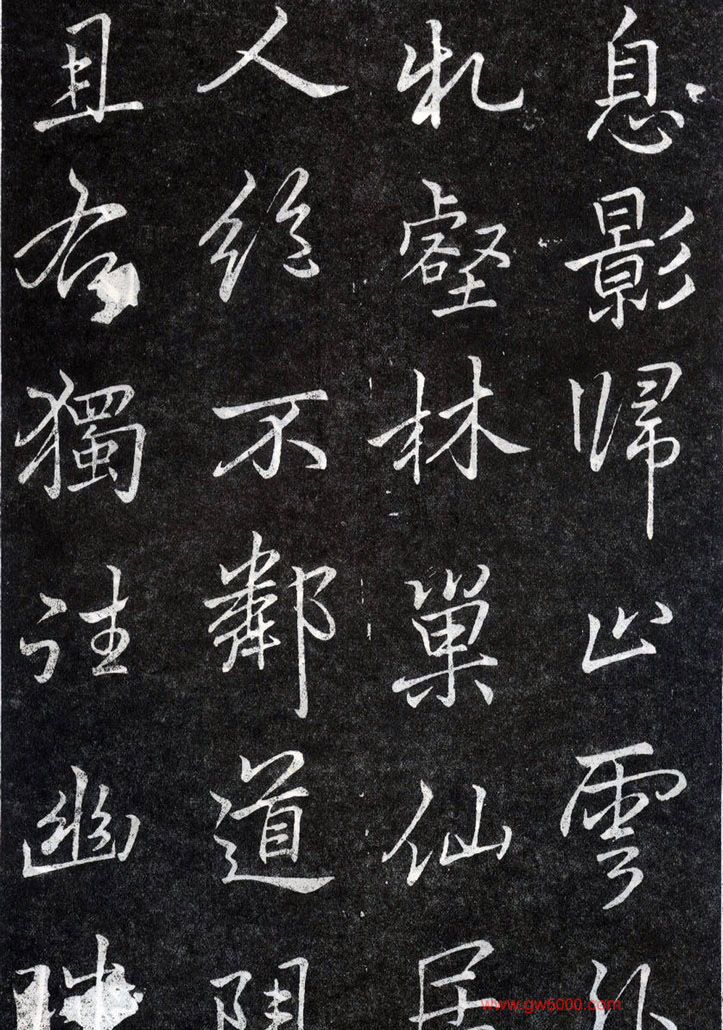 息影歸山雲
牝壑林巢仙居
人絕不鄰道
且獨往幽映
www.gw5000.com